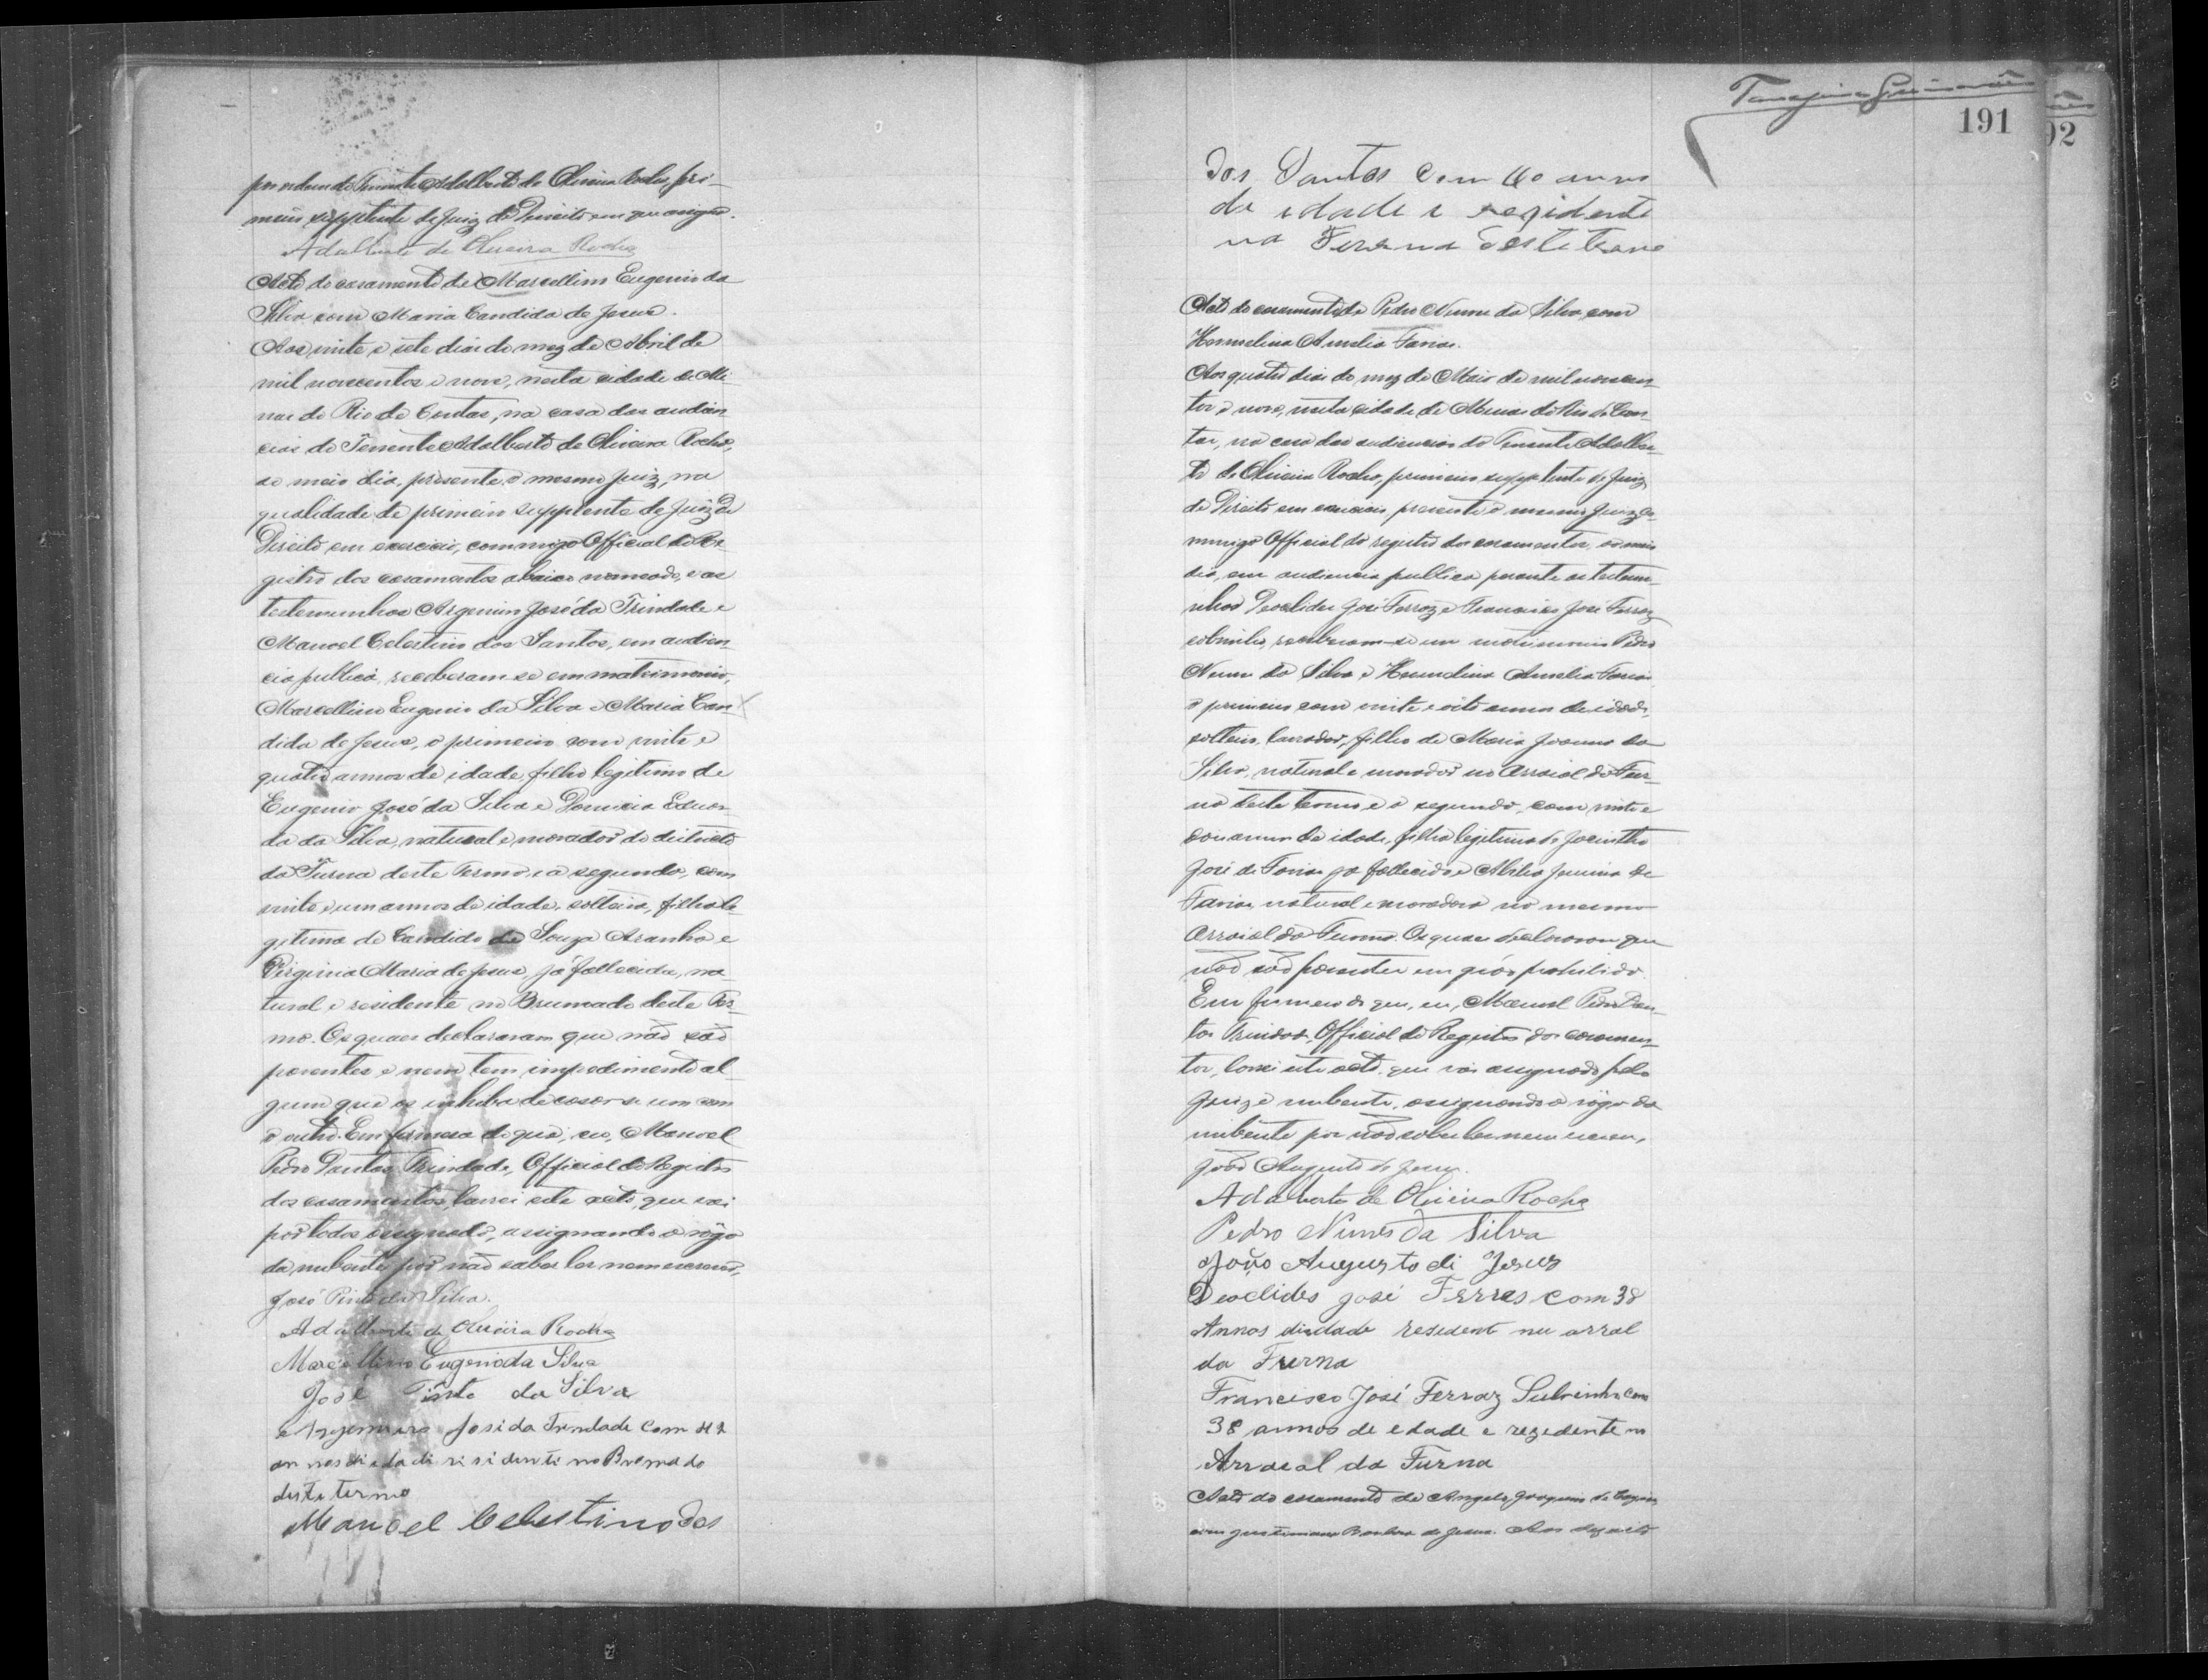 Adalberto de Oliveira Rocha
Acto do casamento de Marcellino Eugenio da
Silva com Maria Candida de Jesus.
Aos vinte e sete dias do mez de Abril de
mil novecentos e nove, nesta cidade de Mi-
nas do Rio de Contas, na casa das audien-
cias do Tenente Adalberto de Oliveira Rocha,
ao meio dia, presente o mesmo Juiz, na
qualidade de primeiro supplente do Juiz de
Direito em exercicio, commigo Official do Re-
gistro dos casamentos abaixo nomeado, e as
testemunhas José da Trindade e
Manoel Celestino dos Santos, em audien-
cia publica, receberam-se em matrimonio,
Marcellino Eugenio da Silva e Maria Can-
dida de Jesus, o primeiro com vinte e
quatro annos de idade, filho legitimo de
Eugenio José da Silva e Eduar-
da da Silva, natural e morador do districto
da Furna deste Termo, e a segunda, com
vinte e um annos de idade, solteira, filha le-
gitima de Candido de Souza Aranha e
Virginia Maria de Jesus, já fallecida, na-
tural e residente no Brumado deste Ter-
mo. Os quaes declararam que não são
parentes e nem tem impedimento al-
gum que os inhiba de casar-se um com
o outro. Em firmeza do que, eu, Manoel
Pedro Dantas Trindade, Official do Registro
dos casamentos, lavrei este acto, que vai
por todos assignado, assignando a rogo
da nubente por não saber ler nem escrever,
José Pinto da Silva.
Adalberto de Oliveira Rocha
Marcellino Eugenio da Silva
José Pinto da Silva
José da Trindade com 42
annos di edadi risidenti no Bromado
desti termo
Manoel Celestino dos
191
92
dos Santos com 60 annos
de idade e rezidente
na Furna deste
Acto do casamento de Pedro Nunes da Silva com
Hermelina Amelia Farias.
Aos quatro dias do mez de Maio de mil novecen-
tos e nove, nesta cidade de Minas do Rio de Con-
tas, na casa das audiencias do Tenente Adalber-
to de Oliveira Rocha, primeiro supplente do Juiz
de Direito em exercicio, presente o mesmo Juiz, co-
mmigo Official do registro dos casamentos, ao meio
dia, em audiencia publica perante as testemu-
nhas Deoclides José Ferraz e Francisco José Ferraz
sobrinho, receberam-se em matrimonio Pedro
Nunes da Silva e Hermelina Amelia Farias
o primeiro com vinte e oito annos de idade,
solteiro, lavrador, filho de Maria Joanna da
Silva, natural e morador no Arraial da Fur-
na deste termo, e a segunda, com vinte e
annos de idade, filha legitima de Jacintho
José de Farias já fallecido e de
Farias, natural e moradora no mesmo
Arraial da Furna. Os quaes declararam que
não são parentes em gráo prohibido.
Em firmeza do que, eu, Manoel Pedro Dan-
tas Trindade, Official do Registro dos casamen-
tos, lavrei este acto, que vai assignado pelo
Juiz e nubente, assignando a rogo da
nubente por não saber ler nem escrever,
João Augusto de Jesus.
Adalberto de Oliveira Rocha
Pedro Nunes da Silva
João Augusto di Jesus
Deoclides José Ferras com 38
Annos didade resedent nu arral
da Furna
Francisco José Ferraz Subrinho com
38 annos de edade e rezedente no
Arraeal da Furna
Acto do casamento de Angelo Joaquim de
com Barbosa de Jesus. Aos dezoito